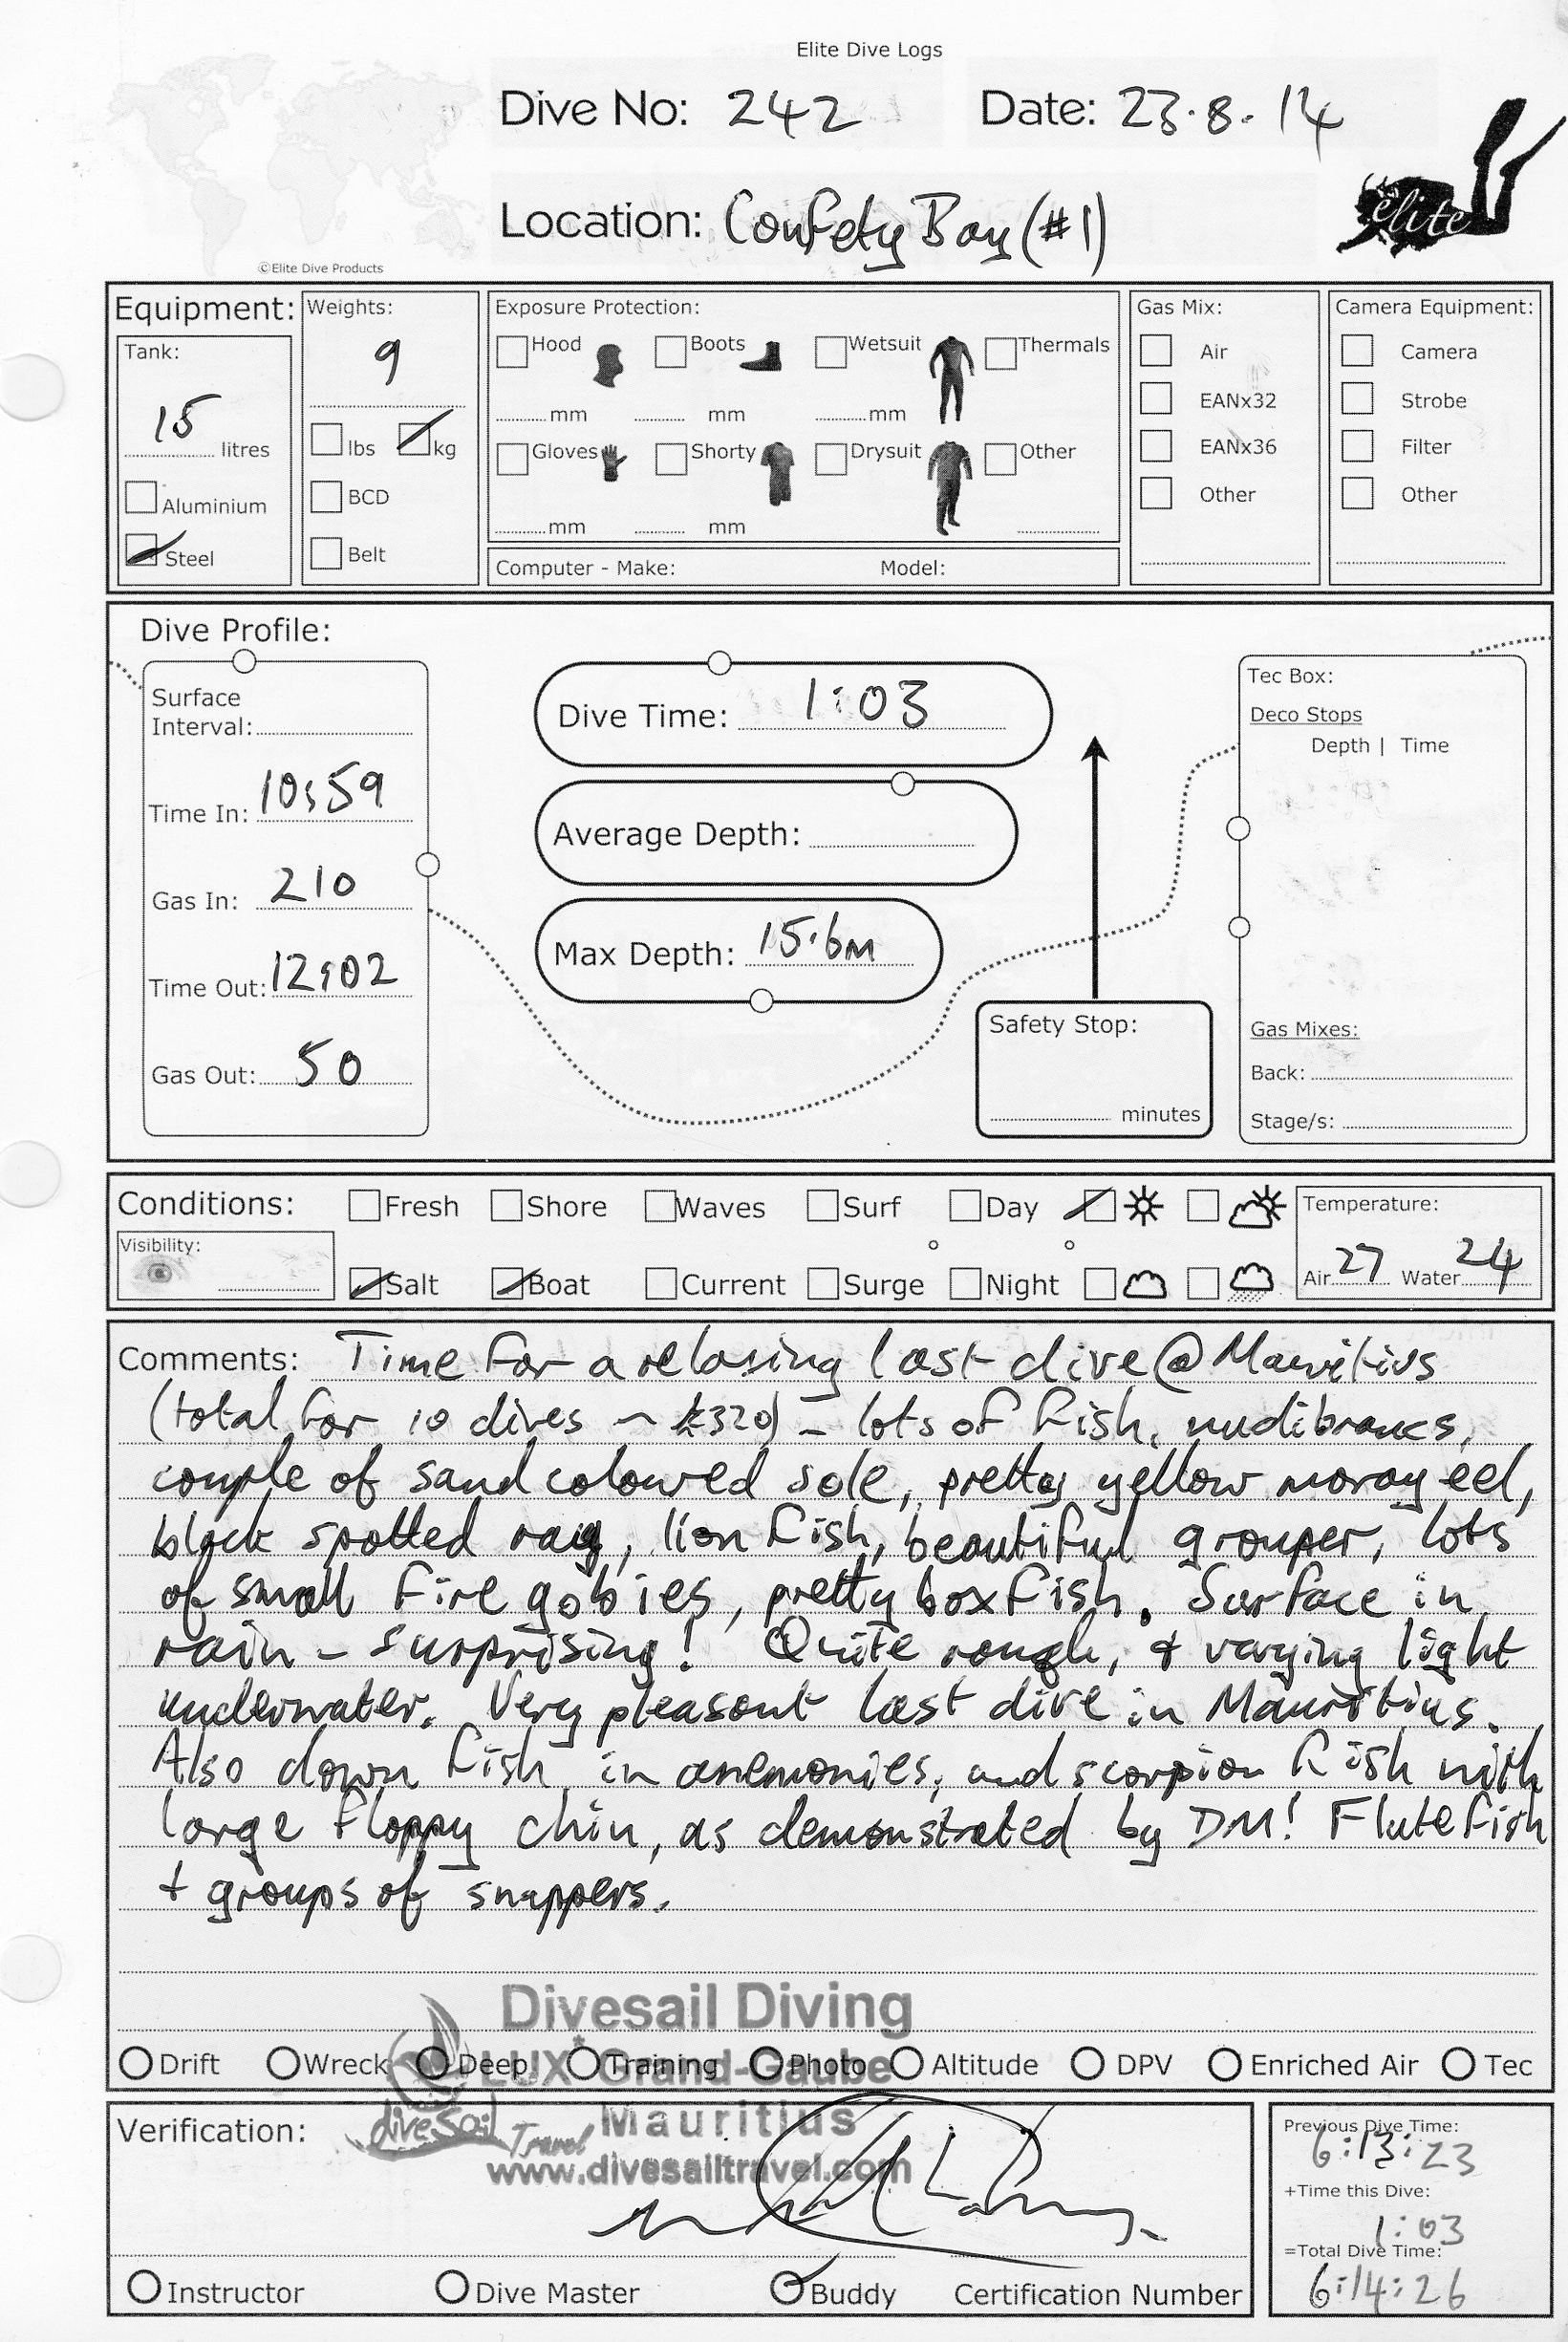 Elite Dive Logs
Dive No: 242 Date: 23.8.14
Location: Confety Bay (#1)
élite
©Elite Dive Products
Equipment:
Tank:
15 litres
Aluminium
Steel
Weights:
9
lbs kg
BCD
Belt
Exposure Protection:
Hood Boots Wetsuit Thermals
mm mm mm
Gloves Shorty Drysuit Other
mm mm
Computer - Make: Model:
Gas Mix:
Air
EANx32
EANx36
Other
Camera Equipment:
Camera
Strobe
Filter
Other
Dive Profile:
Surface
Interval:
Time In: 10:59
Gas In: 210
Time Out: 12:02
Gas Out: 50
Dive Time: 1:03
Average Depth:
Max Depth: 15.6m
Safety Stop:
minutes
Tec Box:
Deco Stops
Depth | Time
Gas Mixes:
Back:
Stage/s:
Conditions:
Visibility:
Fresh Shore Waves Surf Day
Salt Boat Current Surge Night
Temperature:
Air 27 Water 24
Comments: Time for a relaxing last dive @ Mauritius
(total for 10 dives ~ £320) - lots of fish, nudibrancs,
couple of sand coloured sole, pretty yellow moray eel,
black spotted ray, lion fish, beautiful grouper, lots
of small fire gobies, pretty boxfish. Surface in
rain - surprising! Quite rough, & varying light
underwater. Very pleasant last dive in Mauritius.
Also clown fish in anemonies, and scorpion fish with
large floppy chin, as demonstrated by DM! Flutefish
+ groups of snappers.
Divesail Diving
LUX* Grand-Gaube
Mauritius
www.divesailtravel.com
diveSail Travel
Drift Wreck Deep Training Photo Altitude DPV Enriched Air Tec
Verification:
Instructor Dive Master Buddy Certification Number
Previous Dive Time:
6:13:23
+Time this Dive:
1:03
=Total Dive Time:
6:14:26